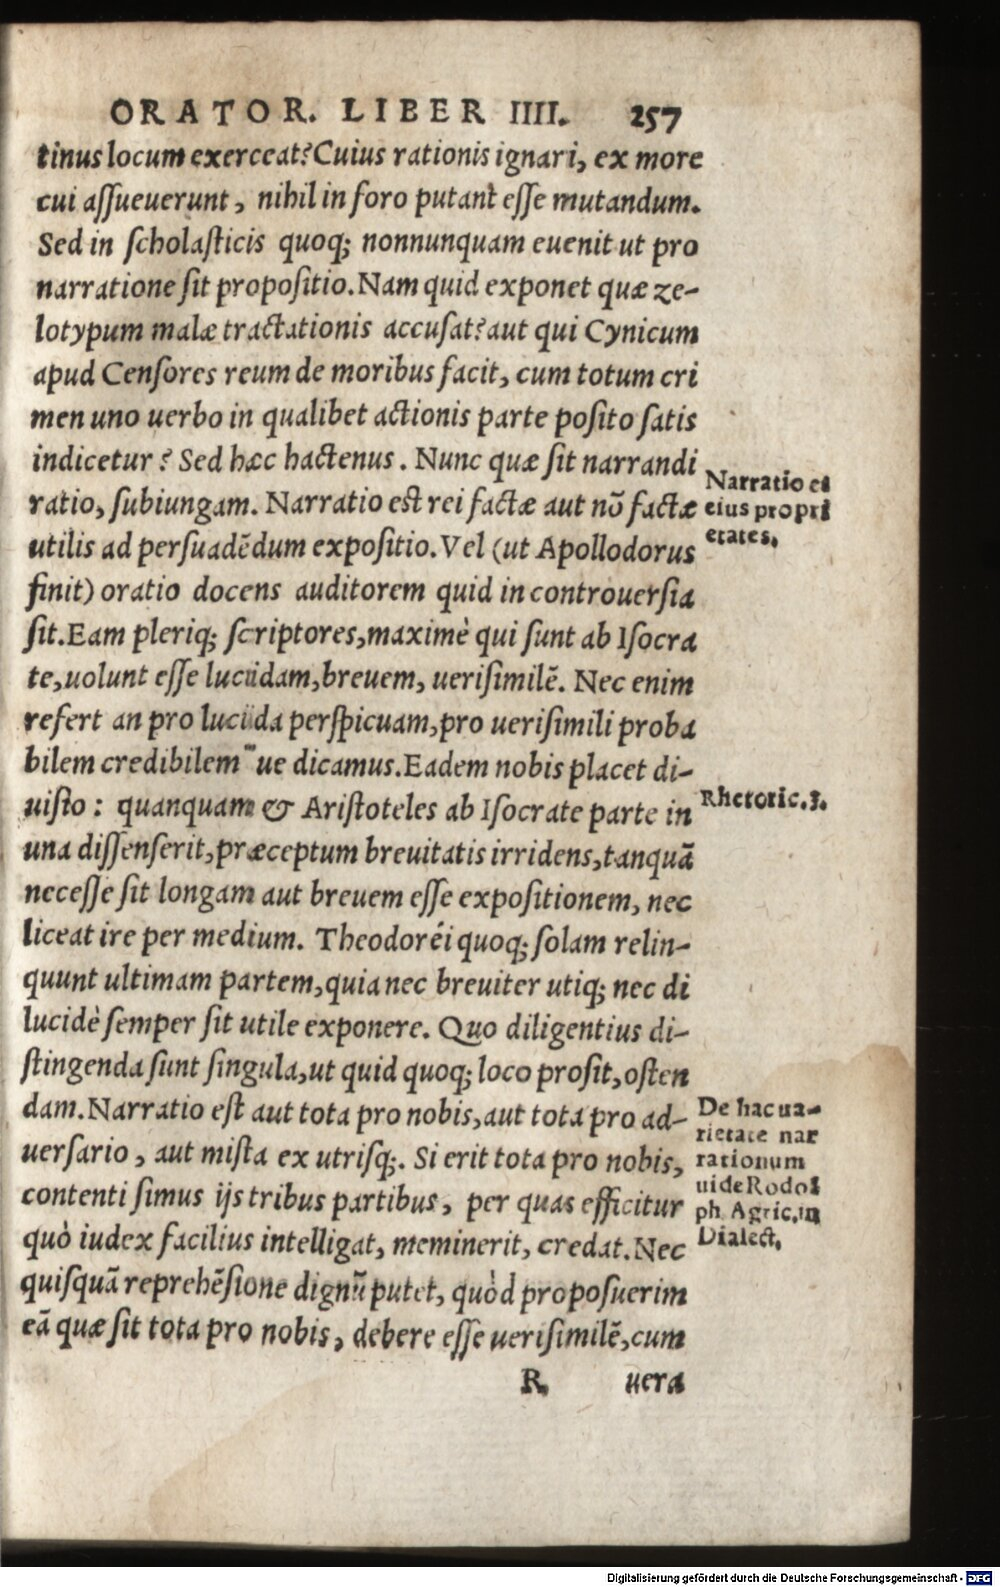 ORATOR. LIBER IIII. 257
tinus locum exerceat? Cuius rationis ignari, ex more
cui assueuerunt, nihil in foro putant esse mutandum.
Sed in scholasticis quoq; nonnunquam euenit ut pro
narratione sit propositio. Nam quid exponet quæ ze-
lotypum malæ tractationis accusat? aut qui Cynicum
apud Censores reum de moribus facit, cum totum cri
men uno uerbo in qualibet actionis parte posito satis
indicetur? Sed hæc hactenus. Nunc quæ sit narrandi
ratio, subiungam. Narratio est rei factæ aut nõ factæ
utilis ad persuadẽdum expositio. Vel (ut Apollodorus
finit) oratio docens auditorem quid in controuersia
sit. Eam pleriq; scriptores, maximè qui sunt ab Isocra
te, uolunt esse lucidam, breuem, uerisimilẽ. Nec enim
refert an pro lucida perspicuam, pro uerisimili proba
bilem credibilem ue dicamus. Eadem nobis placet di-
uisio: quanquam & Aristoteles ab Isocrate parte in
una dissenserit, præceptum breuitatis irridens, tanquã
necesse sit longam aut breuem esse expositionem, nec
liceat ire per medium. Theodoréi quoq; solam relin-
quunt ultimam partem, quia nec breuiter utiq; nec di
lucidè semper sit utile exponere. Quo diligentius di-
stingenda sunt singula, ut quid quoq; loco prosit, osten
dam. Narratio est aut tota pro nobis, aut tota pro ad-
uersario, aut mista ex utrisq;. Si erit tota pro nobis,
contenti simus ijs tribus partibus, per quas efficitur
quò iudex facilius intelligat, meminerit, credat. Nec
quisquã reprehẽsione dignũ putet, quòd proposuerim
eã quæ sit tota pro nobis, debere esse uerisimilẽ, cum
R uera
Narratio et
eius propri
etates.
Rhetoric. 3.
De hac ua-
rietate nar
rationum
uide Rodol
ph. Agric. in
Dialect.
Digitalisierung gefördert durch die Deutsche Forschungsgemeinschaft - DFG